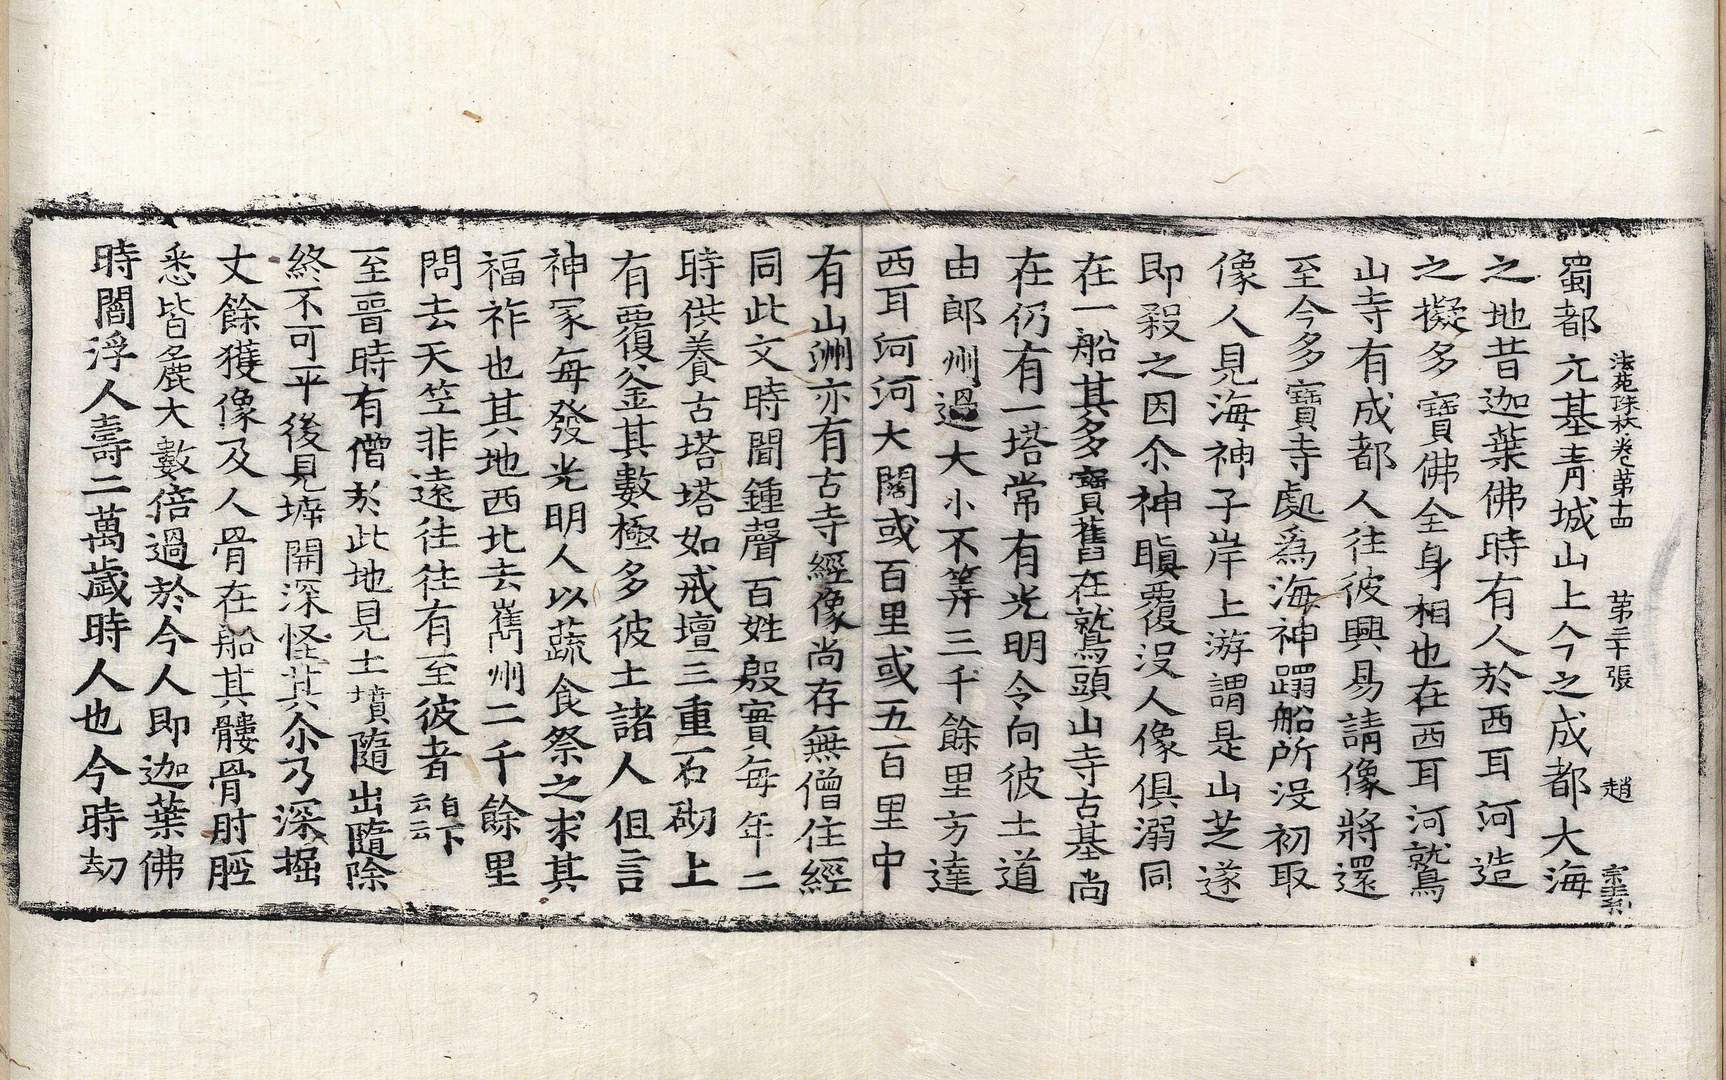 法苑珠林卷第十四 第三十張 趙 宗素
蜀都元基青城山上今之成都大海
之地昔迦葉佛時有人於西耳河造
之擬多寶佛全身相也在西耳河鷲
山寺有成都人往彼興易請像將還
至今多寶寺處爲海神蹋船所沒初取
像人見海神子岸上游謂是山芝遂
即殺之因尒神瞋覆沒人像俱溺同
在一船其多寶舊在鷲頭山寺古基尚
在仍有一塔常有光明今向彼土道
由郎州過大小不等三千餘里方達
西耳河河大闊或百里或五百里中
有山洲亦有古寺經像尚存無僧住經
同此文時聞鍾聲百姓殷實每年二
時供養古塔塔如戒壇三重石砌上
有覆釜其數極多彼土諸人但言
神冢每發光明人以蔬食祭之求其
福祚也其地西北去嶲州二千餘里
問去天竺非遠往往有至彼者自下云云
至晉時有僧於此地見土墳隨出隨除
終不可平後見墲開深怪其尒乃深掘
丈餘獲像及人骨在船其髏骨肘脛
悉皆麁大數倍過於今人即迦葉佛
時閻浮人壽二萬歲時人也今時劫